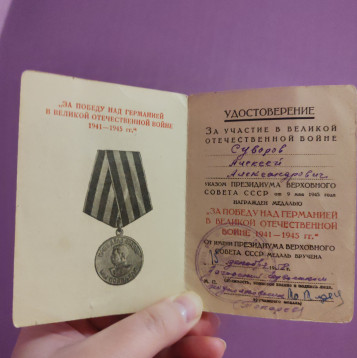 "ЗА ПОБЕДУ НАД ГЕРМАНИЕЙ
В ВЕЛИКОЙ ОТЕЧЕСТВЕННОЙ ВОЙНЕ
1941—1945 гг."
УДОСТОВЕРЕНИЕ
ЗА УЧАСТИЕ В ВЕЛИКОЙ
ОТЕЧЕСТВЕННОЙ ВОЙНЕ
Суворов
Алексей
Александрович
УКАЗОМ ПРЕЗИДИУМА ВЕРХОВНОГО
СОВЕТА СССР от 9 мая 1945 года
НАГРАЖДЕН МЕДАЛЬЮ
"ЗА ПОБЕДУ НАД ГЕРМАНИЕЙ
В ВЕЛИКОЙ ОТЕЧЕСТВЕННОЙ
ВОЙНЕ 1941—1945 гг."
ОТ ИМЕНИ ПРЕЗИДИУМА ВЕРХОВНОГО
СОВЕТА СССР МЕДАЛЬ ВРУЧЕНА